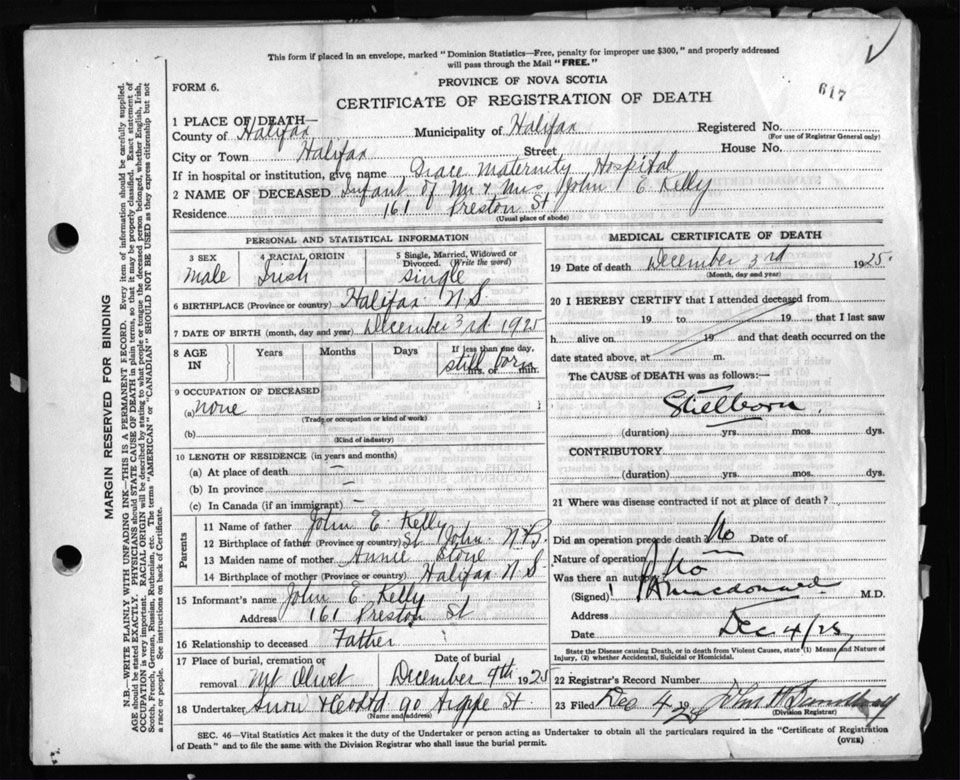 This form if placed in an envelope, marked "Dominion Statistics—Free, penalty for improper use $300," and properly addressed
will pass through the Mail "FREE."
617
PROVINCE OF NOVA SCOTIA
FORM 6.
CERTIFICATE OF REGISTRATION OF DEATH
1 PLACE OF DEATH—
County of Halifax Municipality of Halifax Registered No.
(For use of Registrar General only)
City or Town Halifax Street House No.
If in hospital or institution, give name Grace Maternity Hospital
2 NAME OF DECEASED Infant of Mr & Mrs John E Kelly
Residence 161 Preston St
(Usual place of abode)
PERSONAL AND STATISTICAL INFORMATION
3 SEX 4 RACIAL ORIGIN 5 Single, Married, Widowed or
Divorced. (Write the word)
Male Irish Single
6 BIRTHPLACE (Province or country) Halifax N.S.
7 DATE OF BIRTH (month, day and year) December 3rd 1925
8 AGE IN Years Months Days If less than one day,
still born hrs. or min.
9 OCCUPATION OF DECEASED
(a) none
(Trade or occupation or kind of work)
(b)
(Kind of industry)
10 LENGTH OF RESIDENCE (in years and months)
(a) At place of death —
(b) In province —
(c) In Canada (if an immigrant) —
Parents
11 Name of father John E. Kelly
12 Birthplace of father (Province or country) St John N.B.
13 Maiden name of mother Annie
14 Birthplace of mother (Province or country) Halifax N.S.
15 Informant's name John E Kelly
Address 161 Preston St
16 Relationship to deceased Father
17 Place of burial, cremation or Date of burial
removal Mt Olivet December 4th 1925
18 Undertaker Snow & Co Ltd 90 Argyle St.
(Name and address)
MEDICAL CERTIFICATE OF DEATH
19 Date of death December 3rd 1925.
(Month, day and year)
20 I HEREBY CERTIFY that I attended deceased from
19 to 19 that I last saw
h alive on 19 and that death occurred on the
date stated above, at m.
The CAUSE of DEATH was as follows:—
Stillborn.
(duration) yrs. mos. dys.
CONTRIBUTORY
(duration) yrs. mos. dys.
21 Where was disease contracted if not at place of death?
Did an operation precede death? No Date of
Nature of operation
Was there an autopsy No
(Signed) Macdonald M.D.
Address
Date Dec 4/25
State the Disease causing Death, or in death from Violent Causes, state (1) Means and Nature of
Injury, (2) whether Accidental, Suicidal or Homicidal.
22 Registrar's Record Number
23 Filed Dec 4 1925 John
(Division Registrar)
SEC. 46—Vital Statistics Act makes it the duty of the Undertaker or person acting as Undertaker to obtain all the particulars required in the "Certificate of Registration
of Death" and to file the same with the Division Registrar who shall issue the burial permit. (OVER)
MARGIN RESERVED FOR BINDING
N.B.—WRITE PLAINLY WITH UNFADING INK—THIS IS A PERMANENT RECORD. Every item of information should be carefully supplied.
AGE should be stated EXACTLY. PHYSICIANS should STATE CAUSE OF DEATH in plain terms, so that it may be properly classified. Exact statement of
OCCUPATION is very important. RACIAL ORIGIN will be described by stating to what people or tongue the deceased person belonged, whether English, Irish,
Scotch, French, German, Russian, Ruthenian, etc. The terms "AMERICAN" or "CANADIAN" SHOULD NOT BE USED as they express citizenship but not
a race or people. See instructions on back of Certificate.